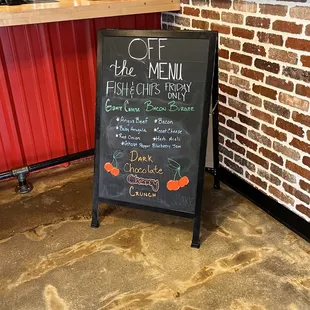 OFF
the MENU
FISH & CHIPS FRIDAY ONLY
Goat Cheese Bacon Burger
*Angus Beef *Bacon
*Baby Arugula *Goat Cheese
*Red Onion *Herb Aioli
*House Pepper Bacon Jam
Dark
Chocolate
Cherry
Crunch